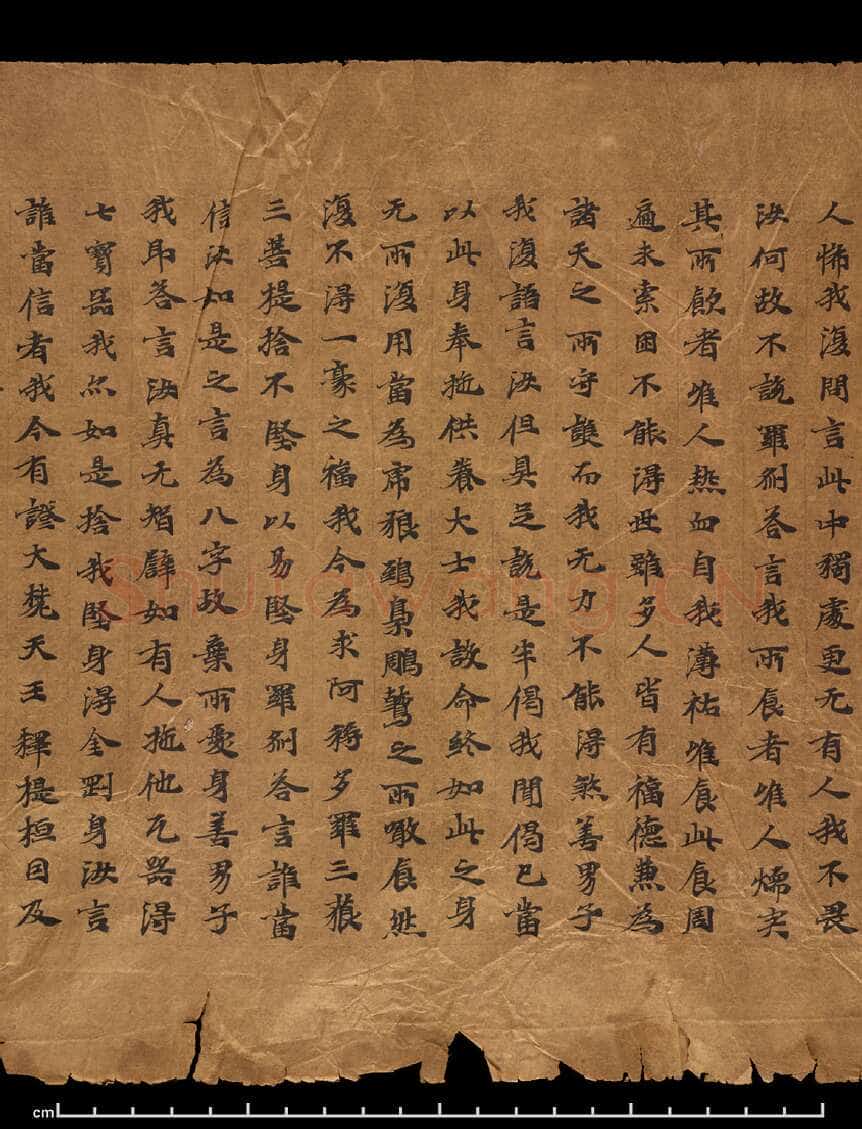 人怖我復問言此中獨處更无有人我不畏
汝何故不說羅刹荅言我所食者唯人燸宍
其所飲者唯人熱血自我薄祐唯食此食周
遍求索困不能得世雖多人皆有福德兼為
諸天之所守護而我无力不能得煞善男子
我復語言汝但具足說是半偈我聞偈已當
以此身奉施供養大士我設命終如此之身
无所復用當為虎狼鵄梟鵰鷲之所噉食然
復不得一豪之福我今為求阿耨多羅三藐
三菩提捨不堅身以易堅身羅刹荅言誰當
信汝如是之言為八字故棄所愛身善男子
我即荅言汝真无智譬如有人施他瓦器得
七寶器我亦如是捨我堅身得金剛身汝言
誰當信者我今有證大梵天王釋提桓因及
cm